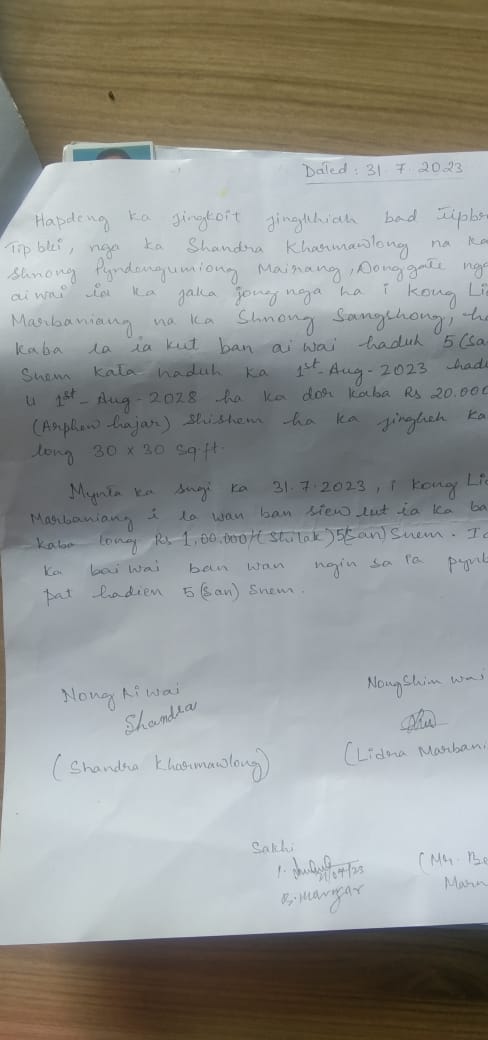 Dated: 31.7.2023
Hapdeng ka jingkoit jingkhiah bad
Tip blei, nga ka Shandra Kharmawlong na ka
Shnong Pyndengumiong Mairang, Dong gate nga
ai wai ïa ka jaka jong nga ha i Kong
Marbaniang na ka Shnong Sangshong,
kaba la ïa kut ban ai wai haduh 5
Snem kata haduh ka 1st-Aug-2023
u 1st-Aug-2028 ha ka dor kaba Rs 20.000
(Arphew hajar) Shishem ha ka jingheh ka
long 30 x 30 sq.ft.
Mynta ka sngi ka 31.7.2023, i kong
Marbaniang i la wan ban siew lut ia ka
kaba long Rs 1,00.000/(Shilak) 5(san) Snem.
ka bai wai ban wan ngin sa ïa
pat hadien 5 (san) Snem.
Nong Ai wai
Shandra
(Shandra Kharmawlong)
NongShim wai
(Lidora
Sakhi
1.
B. Marngar
(Mr.